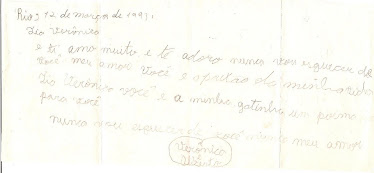 Rio, 12 de março de 1991.
Tio Verônico
e ti amo muito e te adoro nunca vou esquecer de
você meu amor você é a paixão da minha vida
Tio Verônico você é a minha gatinha um poema
para você
nunca vou esquecer de você meu amor
Verônica